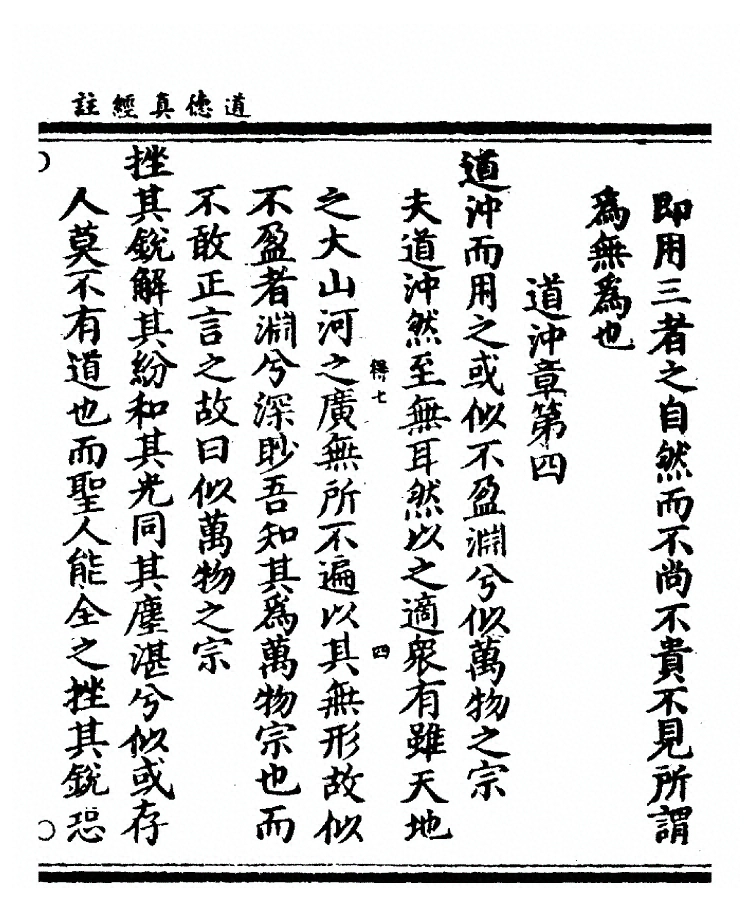 道德真經註
即用三者之自然而不尚不貴不見所謂
爲無爲也
道沖章第四
道沖而用之或似不盈淵兮似萬物之宗
夫道沖然至無耳然以之適衆有雖天地
得七
四
之大山河之廣無所不遍以其無形故似
不盈者淵兮深眇吾知其爲萬物宗也而
不敢正言之故曰似萬物之宗
挫其銳解其紛和其光同其塵湛兮似或存
人莫不有道也而聖人能全之挫其銳恐